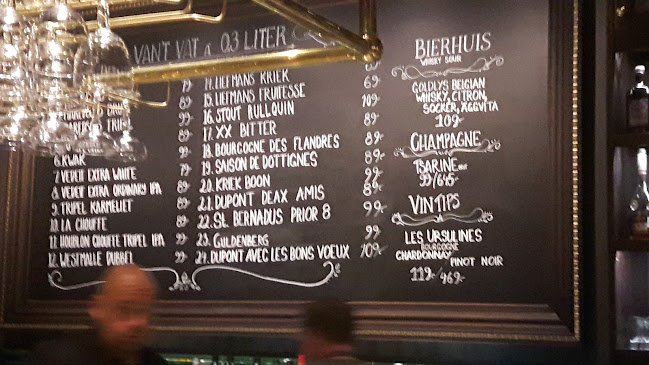 VANT VAT á 0.3 LITER
6. KWAK 89-
7. VEDETT EXTRA WHITE 79-
8. VEDETT EXTRA ORDINARY IPA 89-
9. TRIPEL KARMELIET 99-
10. LA CHOUFFE 89-
11. HOUBLON CHOUFFE TRIPEL IPA 99-
12. WESTMALLE DUBBEL 99-
14. LIEFMANS KRIEK 89-
15. LIEFMANS FRUITESSE 69-
16. STOUT RULLQUIN 109-
17. XX BITTER 89-
18. BOURGOGNE DES FLANDRES 89-
19. SAISON DE DOTTIGNES 89-
20. KRIEK BOON 99-
21. DUPONT DEAX AMIS 89-
22. ST. BERNADUS PRIOR 8 99-
23. GULDENBERG 99-
24. DUPONT AVEC LES BONS VOEUX 109-
BIERHUIS
WHISKY SOUR
GOLDLYS BELGIAN
WHISKY, CITRON,
SOCKER, ÄGGVITA
109-
CHAMPAGNE
TSARINE
99/645-
VINTIPS
LES URSULINES
BOURGOGNE
CHARDONNAY PINOT NOIR
119-/469-